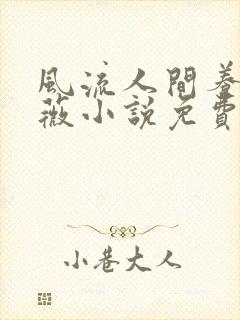 風流人間養
薇小說免費
小巷大人